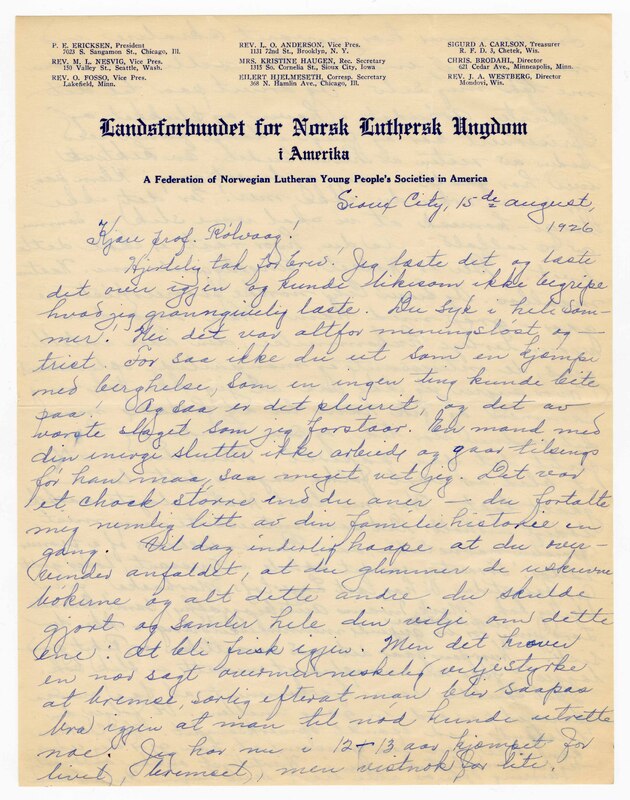 P. E. ERICKSEN, President
7023 S. Sangamon St., Chicago, Ill.
REV. M. L. NESVIG, Vice Pres.
150 Valley St., Seattle, Wash.
REV. O. FOSSO, Vice Pres.
Lakefield, Minn.
REV. L. O. ANDERSON, Vice Pres.
1131 72nd St., Brooklyn, N. Y.
MRS. KRISTINE HAUGEN, Rec. Secretary
1315 So. Cornelia St., Sioux City, Iowa
EILERT HJELMESETH, Corresp. Secretary
368 N. Hamlin Ave., Chicago, Ill.
SIGURD A. CARLSON, Treasurer
R. F. D. 3, Chetek, Wis.
CHRIS. BRODAHL, Director
621 Cedar Ave., Minneapolis, Minn.
REV. J. A. WESTBERG, Director
Mondovi, Wis.
Landsforbundet for Norsk Luthersk Ungdom
i Amerika
A Federation of Norwegian Lutheran Young People's Societies in America
Sioux City, 15de august,
1926
Kjære prof. Rølvaag!
Hjertelig tak for brev! Jeg læste det og læste
det over igjen og kunde likesom ikke begripe
hvad jeg grangivelig læste. Du syk i hele som-
mer! Nei det var altfor meningsløst og
trist. For saa ikke du ut som en kjæmpe
med berghelse, som en ingen ting kunde bite
paa! Og saa er det pleurit, og det av
værste slaget som jeg forstaar. En mand med
din energi slutter ikke arbeide og gaar tilsengs
før han maa, saa meget vet jeg. Det var
et chock større end du aner — du fortalte
meg nemlig litt av din familiehistorie en
gang. Vil dog inderlig haape at du over-
vinder anfaldet, at du glemmer de uskrevne
bøkerne og alt dette andre du skulde
gjort og samler hele din vilje om dette
ene: At bli frisk igjen. Men det kræver
en nær sagt overmenneskelig viljestyrke
at bremse, særlig efterat man blir saapas
bra igjen at man til nød kunde utrette
noe. Jeg har nu i 12-13 aar kjæmpet for
livet, (bremset), men vistnok for lite.